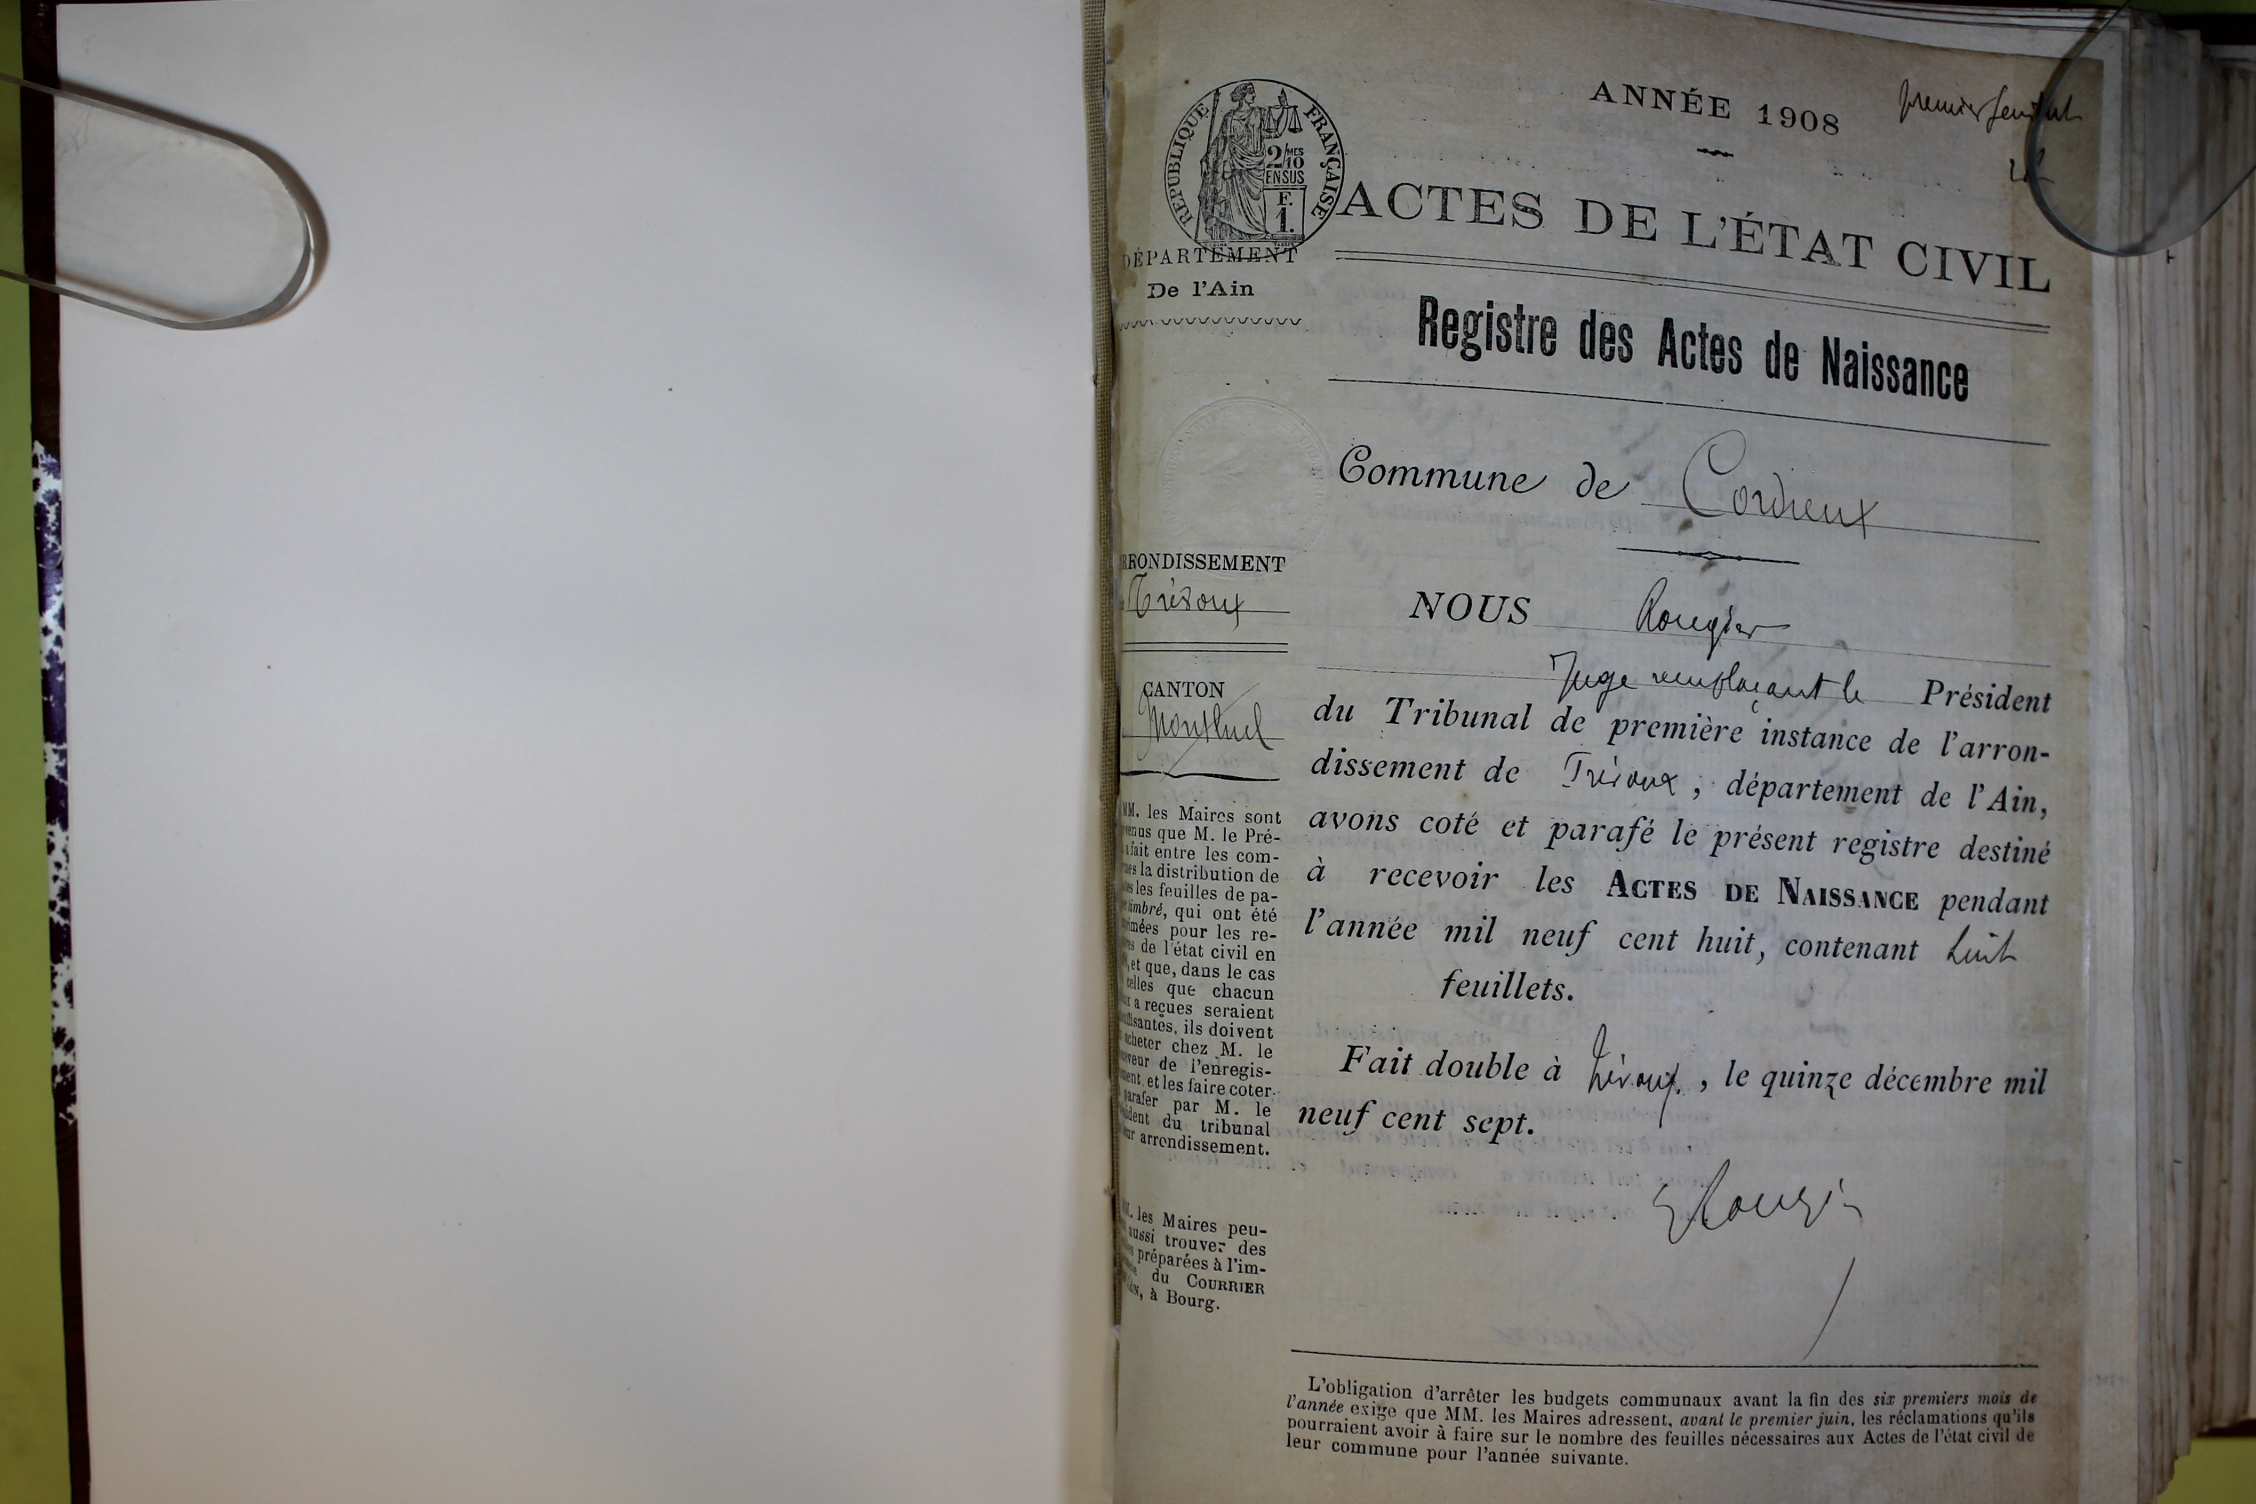 ANNÉE 1908
premier feuillet
RÉPUBLIQUE FRANÇAISE
2/10 MES
EN SUS
F.
1.
ACTES DE L'ÉTAT CIVIL
DÉPARTEMENT
De l'Ain
Registre des Actes de Naissance
Commune de Cordieux
RRONDISSEMENT
Trévoux
CANTON
Montluel
MM. les Maires sont
venus que M. le Pré-
a fait entre les com-
la distribution de
les feuilles de pa-
timbré, qui ont été
pour les re-
de l'état civil en
et que, dans le cas
celles que chacun
a reçues seraient
ils doivent
acheter chez M. le
de l'enregis-
et les faire coter
parafer par M. le
du tribunal
arrondissement.
les Maires peu-
aussi trouver des
préparées à l'im-
du COURRIER
à Bourg.
NOUS Rougier
Juge remplaçant le Président
du Tribunal de première instance de l'arron-
dissement de Trévoux, département de l'Ain,
avons coté et parafé le présent registre destiné
à recevoir les ACTES DE NAISSANCE pendant
l'année mil neuf cent huit, contenant huit
feuillets.
Fait double à Trévoux, le quinze décembre mil
neuf cent sept.
Rougier
L'obligation d'arrêter les budgets communaux avant la fin des six premiers mois de
l'année exige que MM. les Maires adressent, avant le premier juin, les réclamations qu'ils
pourraient avoir à faire sur le nombre des feuilles nécessaires aux Actes de l'état civil de
leur commune pour l'année suivante.